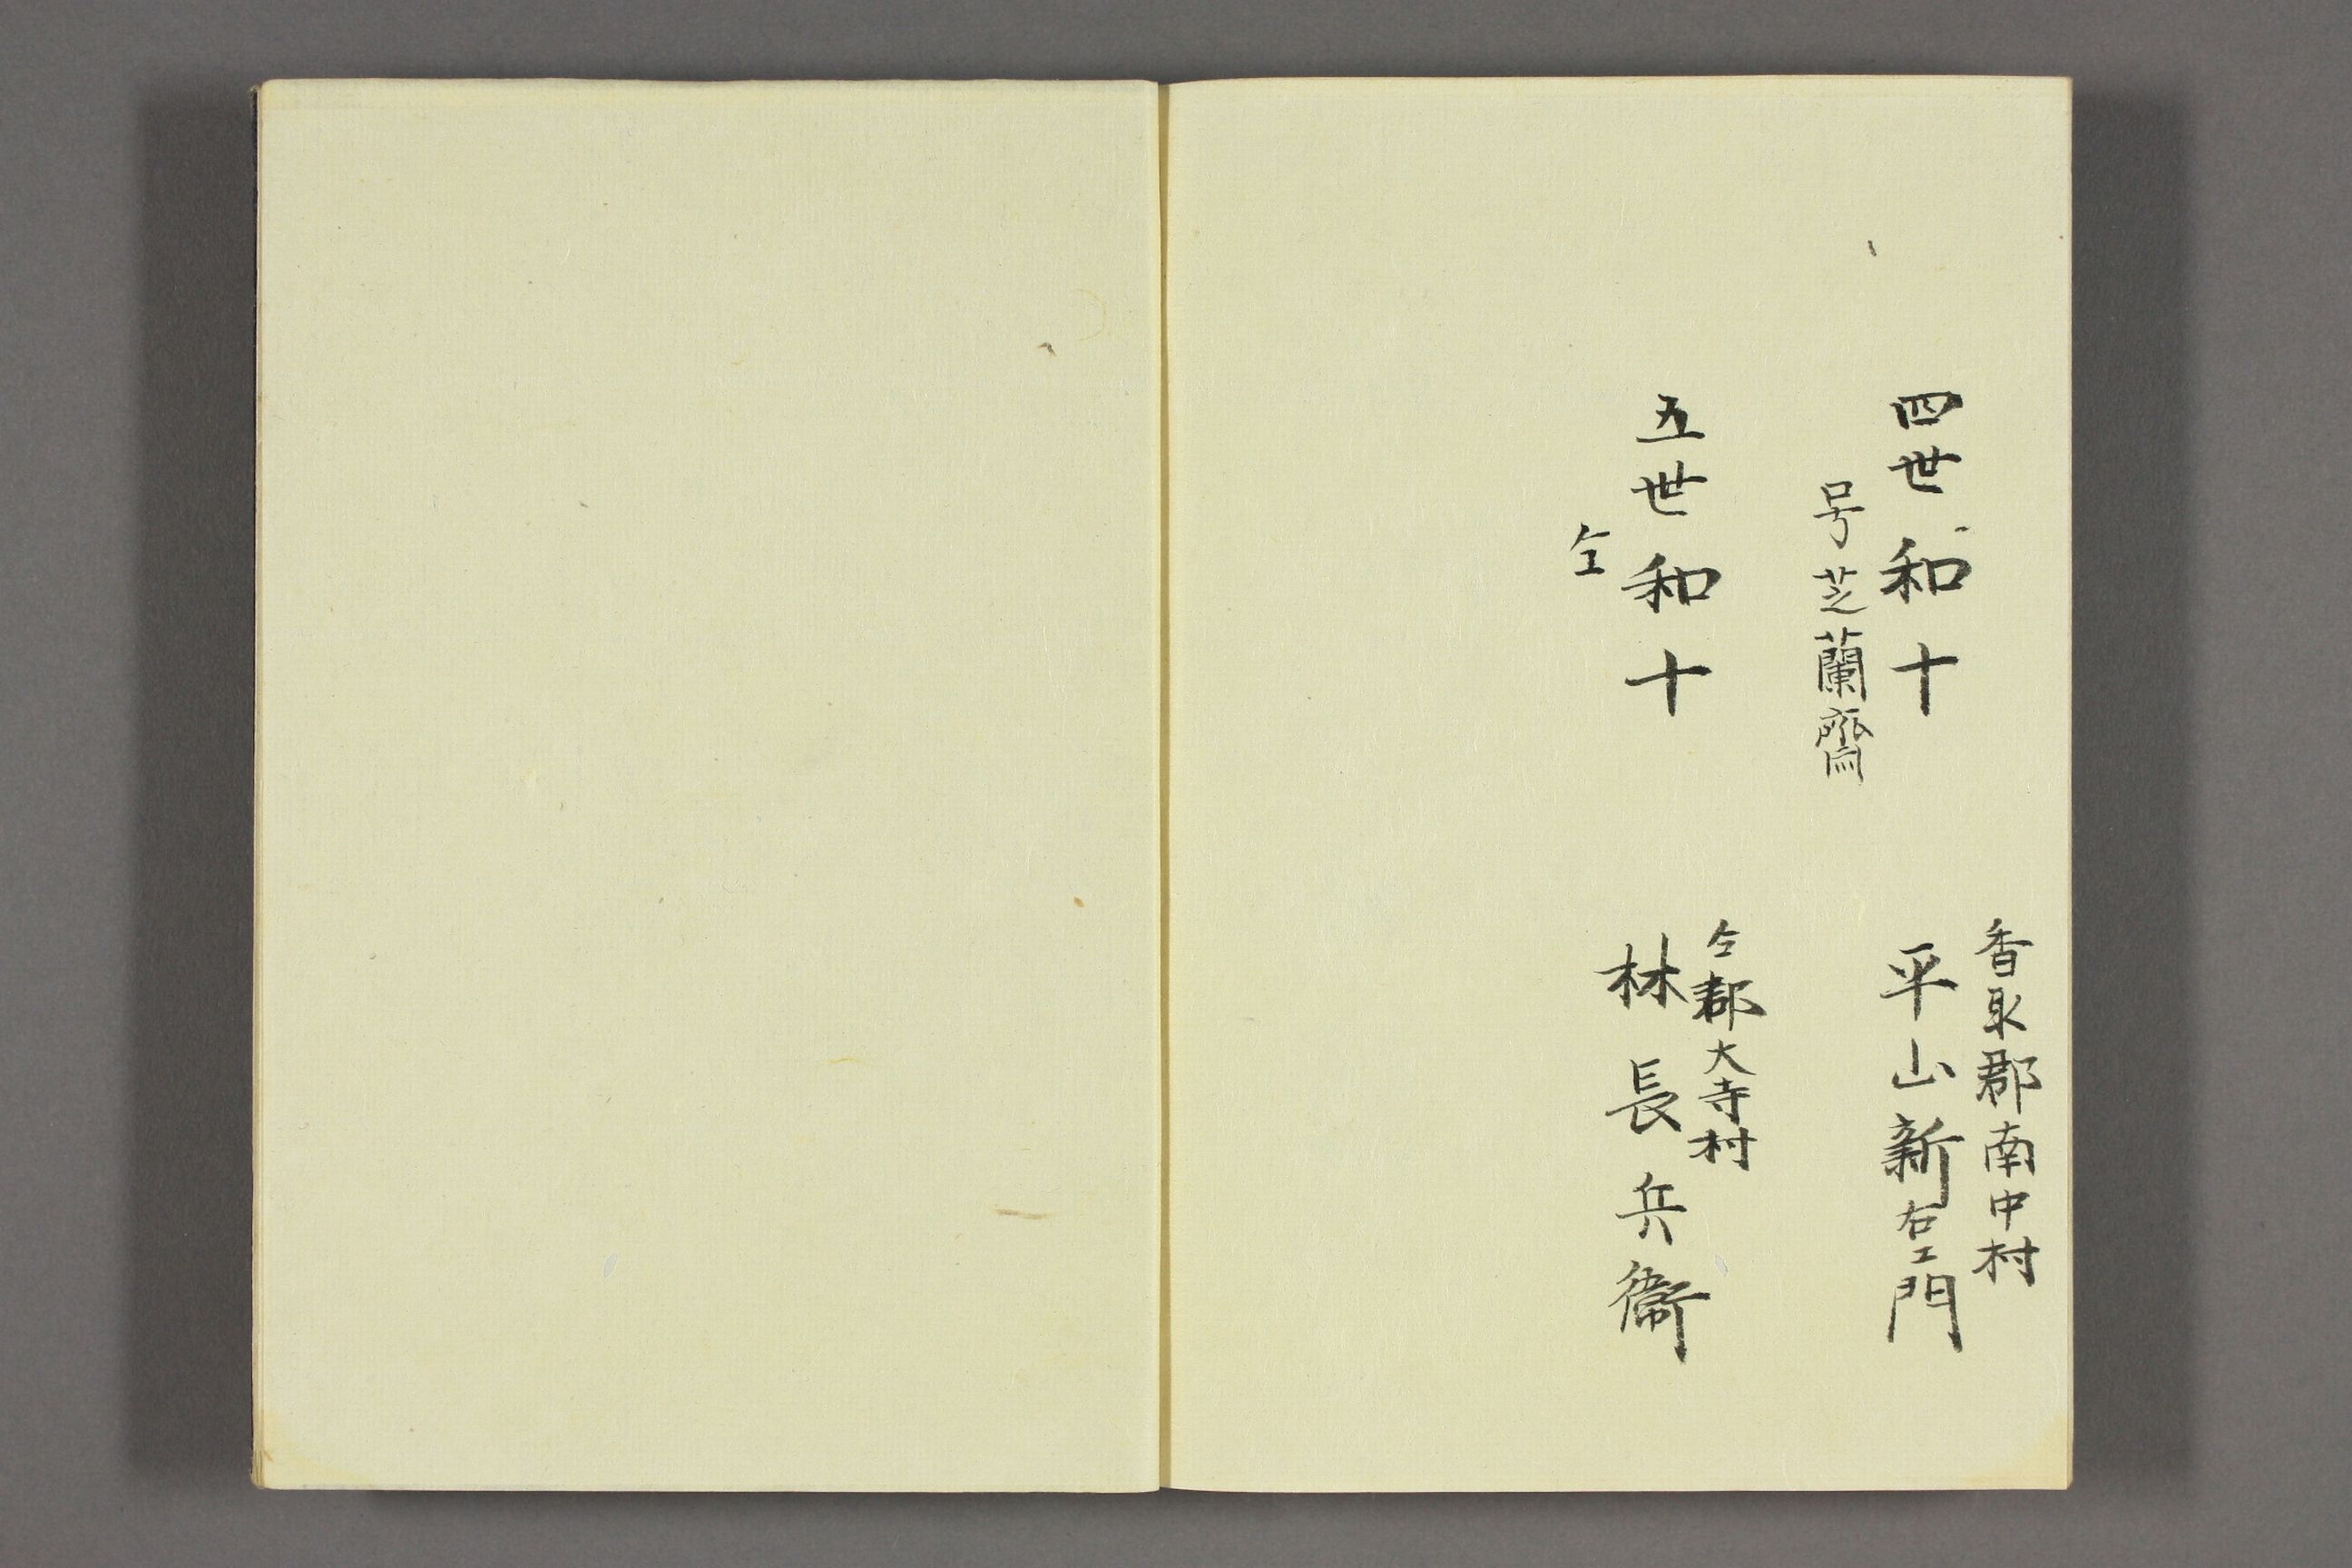 香取郡南中村
四世和十　平山新右エ門
号芝蘭齋
仝郡大寺村
五世和十　林長兵衞
仝